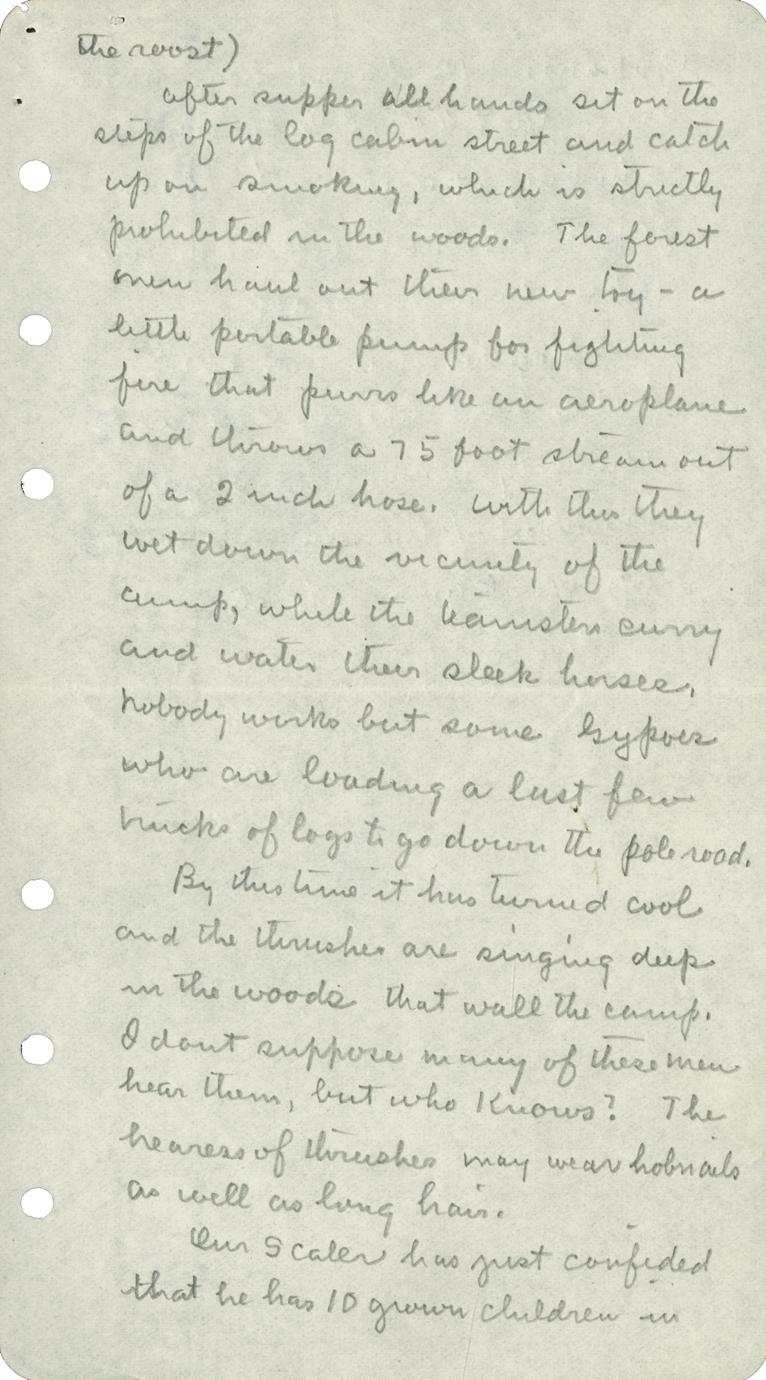 the roost)
After supper all hands sit on the
steps of the log cabin street and catch
up on smoking, which is strictly
prohibited in the woods. The forest
men haul out their new toy - a
little portable pump for fighting
fire that purrs like an aeroplane
and throws a 75 foot stream out
of a 2 inch hose. With this they
wet down the vicinity of the
camp, while the teamsters curry
and water their sleek horses.
Nobody works but some Gypoes
who are loading a last few
trucks of logs to go down the pole road.
By this time it has turned cool
and the thrushes are singing deep
in the woods that wall the camp.
I dont suppose many of these men
hear them, but who knows? The
hearers of thrushes may wear hobnails
as well as long hair.
Our Scaler has just confided
that he has 10 grown children in